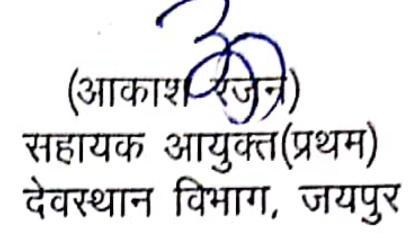 (आकाश रंजन)
सहायक आयुक्त(प्रथम)
देवस्थान विभाग, जयपुर